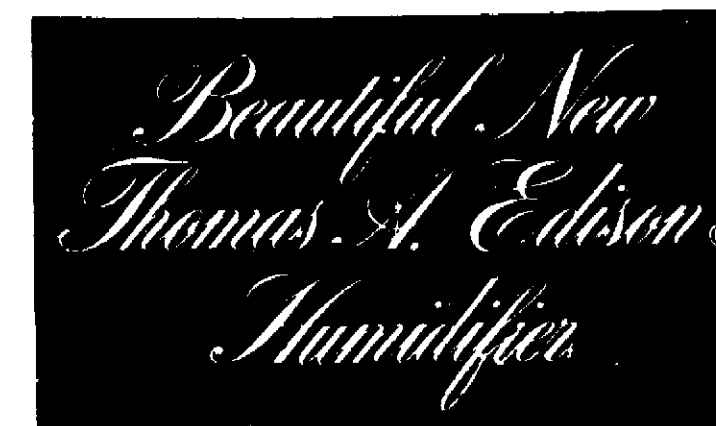 Beautiful New
Thomas A. Edison
Humidifier